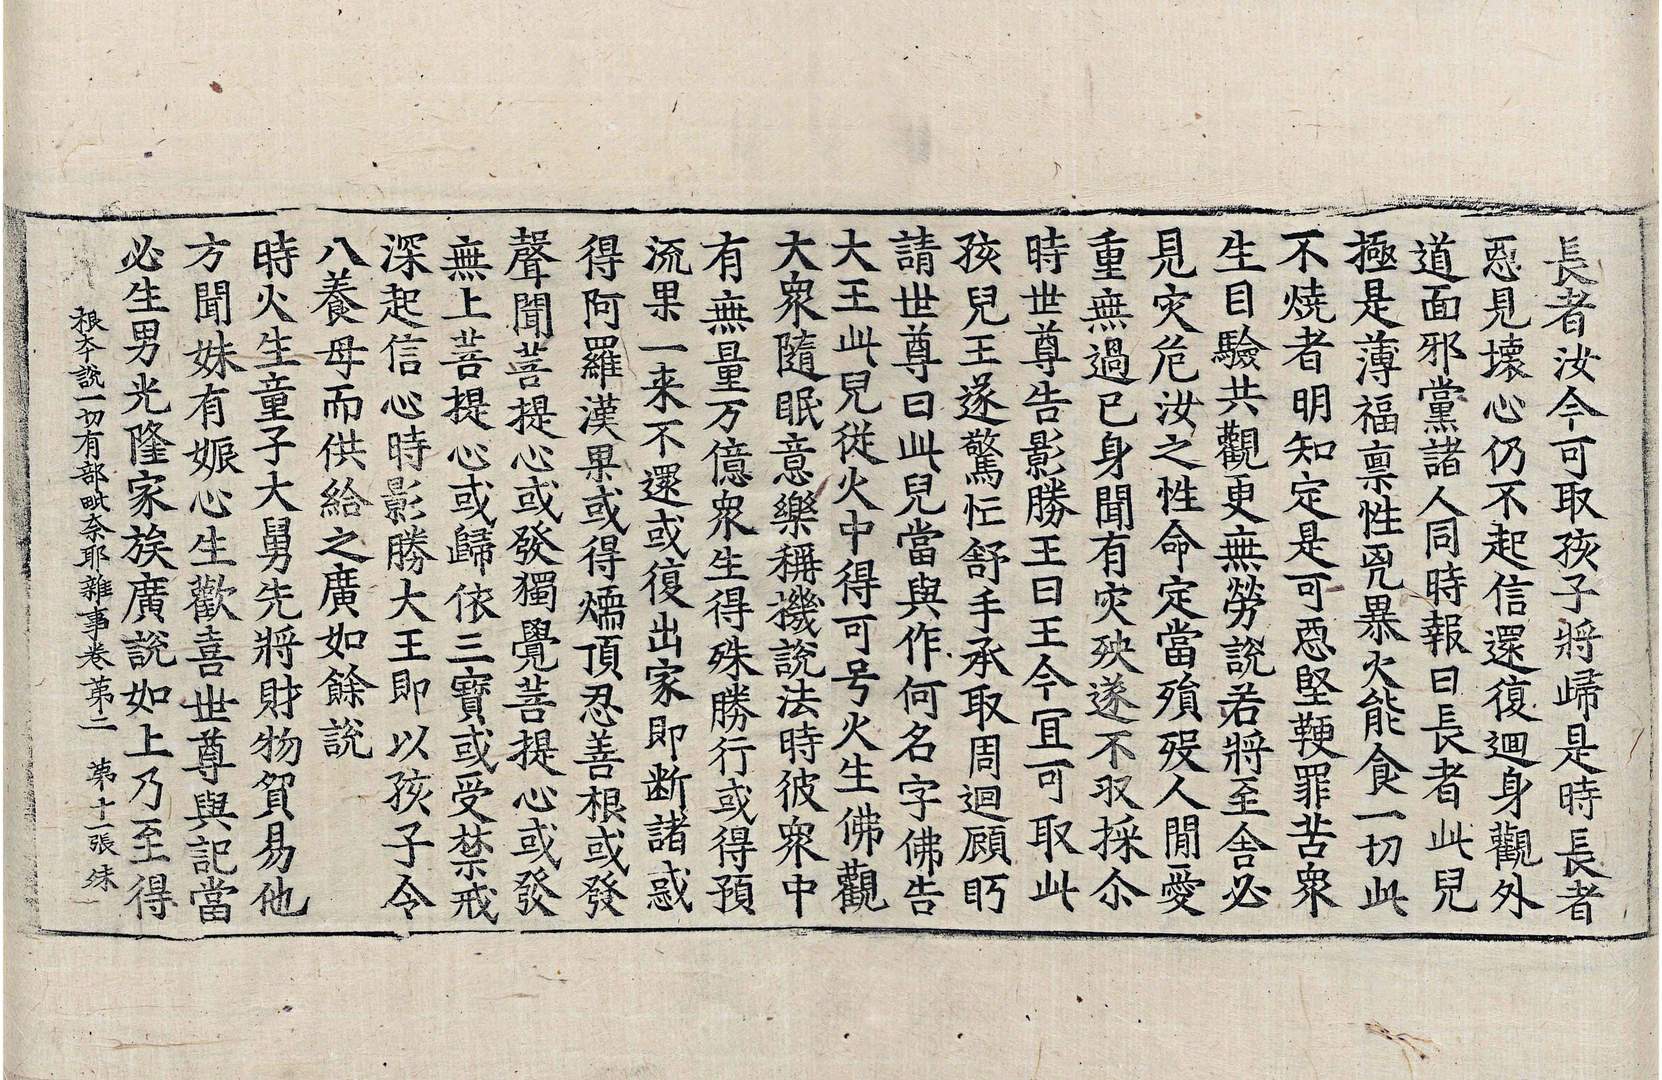 長者汝今可取孩子將歸是時長者
惡見壞心仍不起信還復迴身觀外
道面邪黨諸人同時報曰長者此兒
極是薄福稟性兇暴火能食一切此
不燒者明知定是可惡堅鞕罪苦衆
生目驗共觀更無勞說若將至舍必
見灾危汝之性命定當殞歿人閒愛
重無過己身聞有灾殃遂不収採尒
時世尊告影勝王曰王今宜可取此
孩兒王遂驚忙舒手承取周迴顧眄
請世尊曰此兒當與作何名字佛告
大王此兒從火中得可号火生佛觀
大衆隨眠意樂稱機說法時彼衆中
有無量万億衆生得殊勝行或得預
流果一来不還或復出家即断諸惑
得阿羅漢果或得煗頂忍善根或發
聲聞菩提心或發獨覺菩提心或發
無上菩提心或歸依三寶或受禁戒
深起信心時影勝大王即以孩子令
八養母而供給之廣如餘說
時火生童子大舅先將財物貿易他
方聞妹有娠心生歡喜世尊與記當
必生男光隆家族廣說如上乃至得
根本說一切有部毗奈耶雜事卷第二　第十一張　殊